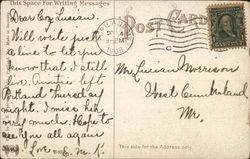 This Space For Writing Messages
POST CARD
Dear Coz Lucian.
Will write just
a line to let you
know that I still
live. Auntie left
Portland Thursday
night. I miss her
very much. Hope to
see you all again
Love E. M. K.
1908
Mr. Lucian Morrison
West Cumberland
Me.
This side for the Address only.